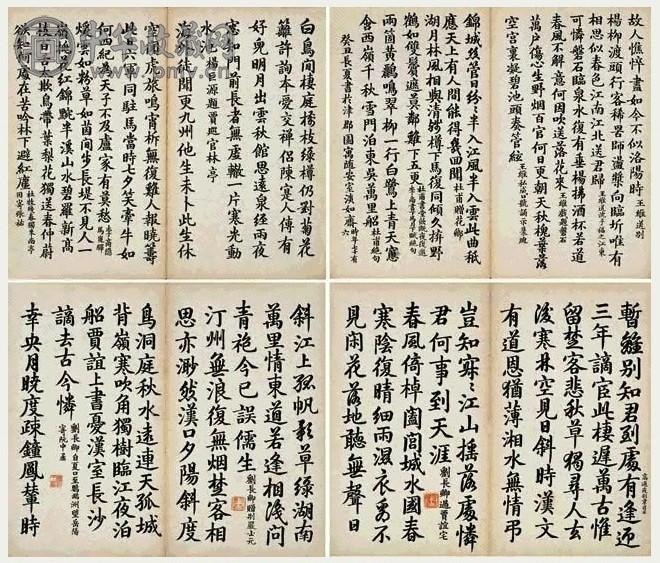 故人憔悴盡如今不似洛陽時 王維送別
楊柳渡頭行客稀罟師盪槳向臨圻唯有
相思似春色江南江北送君歸 王維送沈子福之江東
可憐磐石臨泉水復有垂楊拂酒杯若道
春風不解意何因吹送落花來 王維戲題磐石
萬戶傷心生野烟百官何日更朝天秋槐葉落
空宮裏凝碧池頭奏管絃
錦城絲管日紛〻半入江風半入雲此曲秪
應天上有人間能得幾回聞 杜甫贈花卿
湖月林風相與清殘樽下馬復同傾久拚野
鶴如雙鬢遮莫鄰雞下五更
兩箇黃鸝鳴翠柳一行白鷺上青天窗
含西嶺千秋雪門泊東吳萬里船 杜甫絕句
癸丑長夏書於津郡
白鳥閒棲庭樹枝綠樽仍對菊花
籬許詢本愛交禪侶陳寔人傳有
好兒明月出雲秋館思遠泉經雨夜
窗知門前長者無虛轍一片寒光動
水池 楊巨源題賈巡官林亭
海外徒聞更九州他生未卜此生休
空聞虎旅鳴宵柝無復雞人報曉籌
此日六軍同駐馬當時七夕笑牽牛如
何四紀為天子不及盧家有莫愁 李商隱馬嵬
煙雲如粉草如茵間步長堤不見人一
嶺桃花紅錦黦半溪山水碧羅新高
枝百舌猶欺鳥帶葉梨花獨送春仲蔚
欲知何處在苦吟林下避紅塵 杜牧殘春獨來南亭因寄張祜
暫離別知君到處有逢迎
三年謫宦此棲遲萬古惟
留楚客悲秋草獨尋人去
後寒林空見日斜時漢文
有道恩猶薄湘水無情弔
豈知寂〻江山搖落處憐
君何事到天涯 劉長卿過賈誼宅
春風倚棹闔閭城水國春
寒陰復晴細雨濕衣看不
見閒花落地聽無聲日
斜江上孤帆影草綠湖南
萬里情東道若逢相識問
青袍今已誤儒生 劉長卿贈別嚴士元
汀州無浪復無烟楚客相
思亦渺然漢口夕陽斜
鳥洞庭秋水遠連天孤城
背嶺寒吹角獨樹臨江夜泊
船賈誼上書憂漢室長沙
謫去古今憐 劉長卿自夏口至鸚鵡洲望岳陽寄阮中丞
央月曉度疎鐘鳳輦時